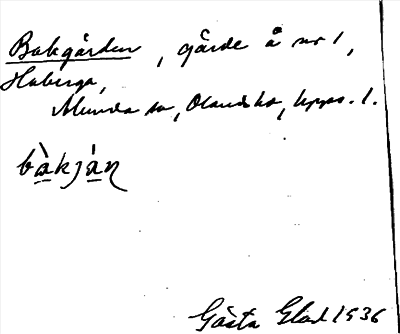 Bakgården, gärde å nr 1,
Haberga,
Munda sn, Olands hd, Upps. l.
bàkjàn
Gösta Glad 1936